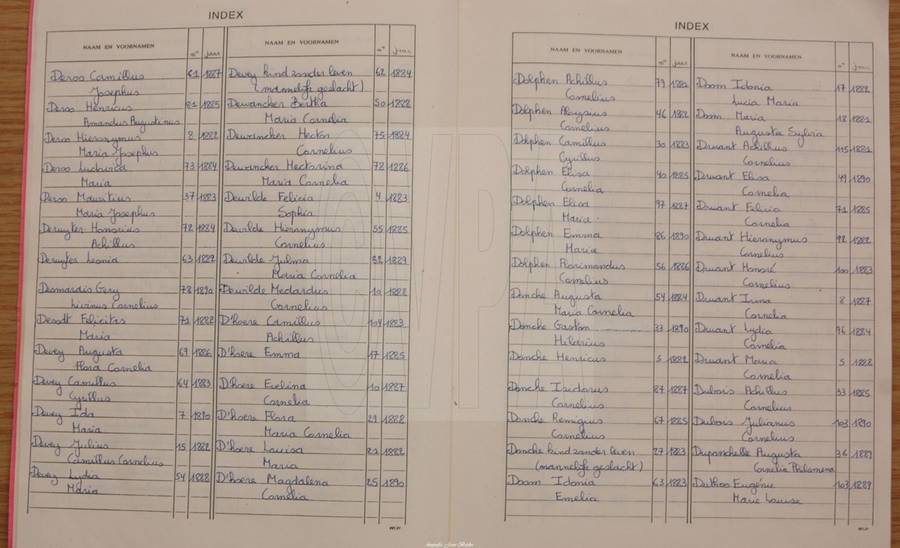 INDEX
NAAM EN VOORNAMEN n° jaar
Deroo Camillus 61 1887
Josephus
Deroo Henricus 81 1885
Amandus Augustinus
Deroo Hieronymus 8 1882
Maria Josephus
Deroo Ludovica 73 1884
Maria
Deroo Mauritius 37 1883
Maria Josephus
Deruyter Honorius 72 1884
Achillus
Deruyter Leonia 63 1882
Desmardis Gery 78 1890
Livinus Cornelius
Desodt Felicitas 71 1882
Maria
Devey Augusta 69 1886
Flora Cornelia
Devey Camillus 64 1883
Cyrillus
Devey Ida 7 1890
Maria
Devey Julius 15 1882
Camillus Cornelius
Devey Lydia 54 1888
Maria
NAAM EN VOORNAMEN n° jaar
Devey kind zonder leven 62 1884
(mannelijk geslacht)
Dewancker Bertha 50 1888
Maria Cornelia
Dewancker Hector 75 1884
Cornelius
Dewancker Hectorina 72 1886
Maria Cornelia
Dewilde Felicia 4 1883
Sophia
Dewilde Hieronymus 55 1885
Cornelius
Dewilde Julma 32 1889
Maria Cornelia
Dewilde Medardus 10 1888
Cornelius
D'haere Camillus 104 1883
Achillus
D'haere Emma 17 1885
D'haere Evelina 10 1887
Cornelia
D'haere Flora 29 1888
Maria Cornelia
D'haere Louisa 21 1882
Maria
D'haere Magdalena 25 1890
Cornelia
INDEX
NAAM EN VOORNAMEN n° jaar
Dolphen Achillus 79 1882
Cornelius
Dolphen Aloysius 46 1882
Cornelius
Dolphen Camillus 30 1883
Cyrillus
Dolphen Elisa 40 1885
Cornelia
Dolphen Elisa 97 1887
Maria
Dolphen Emma 86 1890
Maria
Dolphen Florimondus 56 1886
Cornelius
Donche Augusta 54 1884
Maria Cornelia
Donche Gaston 33 1890
Hilarius
Donche Henricus 5 1882
Donche Isidorus 87 1887
Cornelius
Donche Remigius 67 1885
Cornelius
Donche kind zonder leven 27 1883
(mannelijk geslacht)
Doom Idonia 63 1883
Emelia
NAAM EN VOORNAMEN n° jaar
Doom Idonia 17 1882
Lucia Maria
Doom Maria 18 1881
Augusta Sylvia
Druant Achillus 115 1881
Cornelius
Druant Elisa 49 1890
Cornelia
Druant Felicia 71 1885
Cornelia
Druant Hieronymus 92 1882
Cornelius
Druant Honoré 100 1883
Cornelius
Druant Irma 8 1887
Cornelia
Druant Lydia 76 1884
Cornelia
Druant Maria 5 1888
Cornelia
Dubois Achillus 33 1885
Cornelius
Dubois Julianus 103 1890
Cornelius
Duponchelle Augusta 36 1889
Cornelia Philomena
Duthoo Eugénie 103 1889
Marie Louise